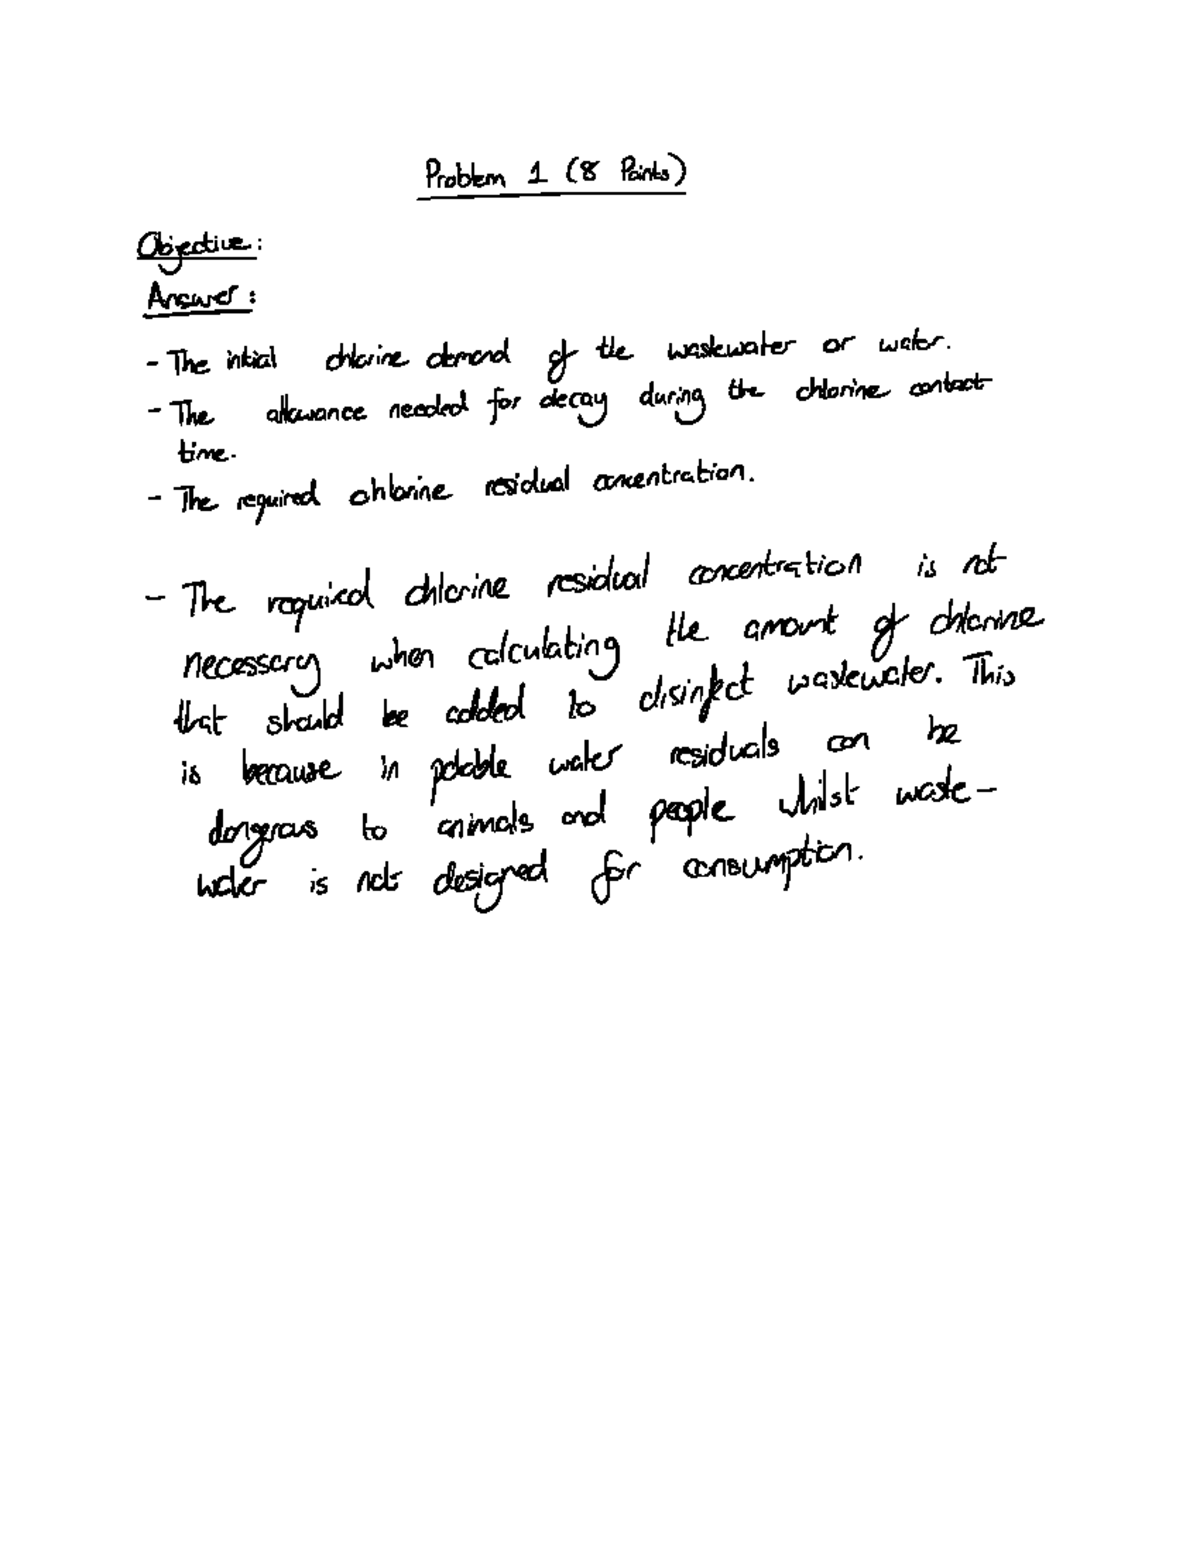 Problem 1 (8 Points)
Objective:
Answer:
- The intial chlorine demand of the wastewater or water.
- The allowance needed for decay during the chlorine contact
time.
- The required chlorine residual concentration.
- The required chlorine residual concentration is not
necessary when calculating the amount of chlorine
that should be added to disinfect wastewater. This
is because in potable water residuals can be
dangerous to animals and people whilst waste-
water is not designed for consumption.